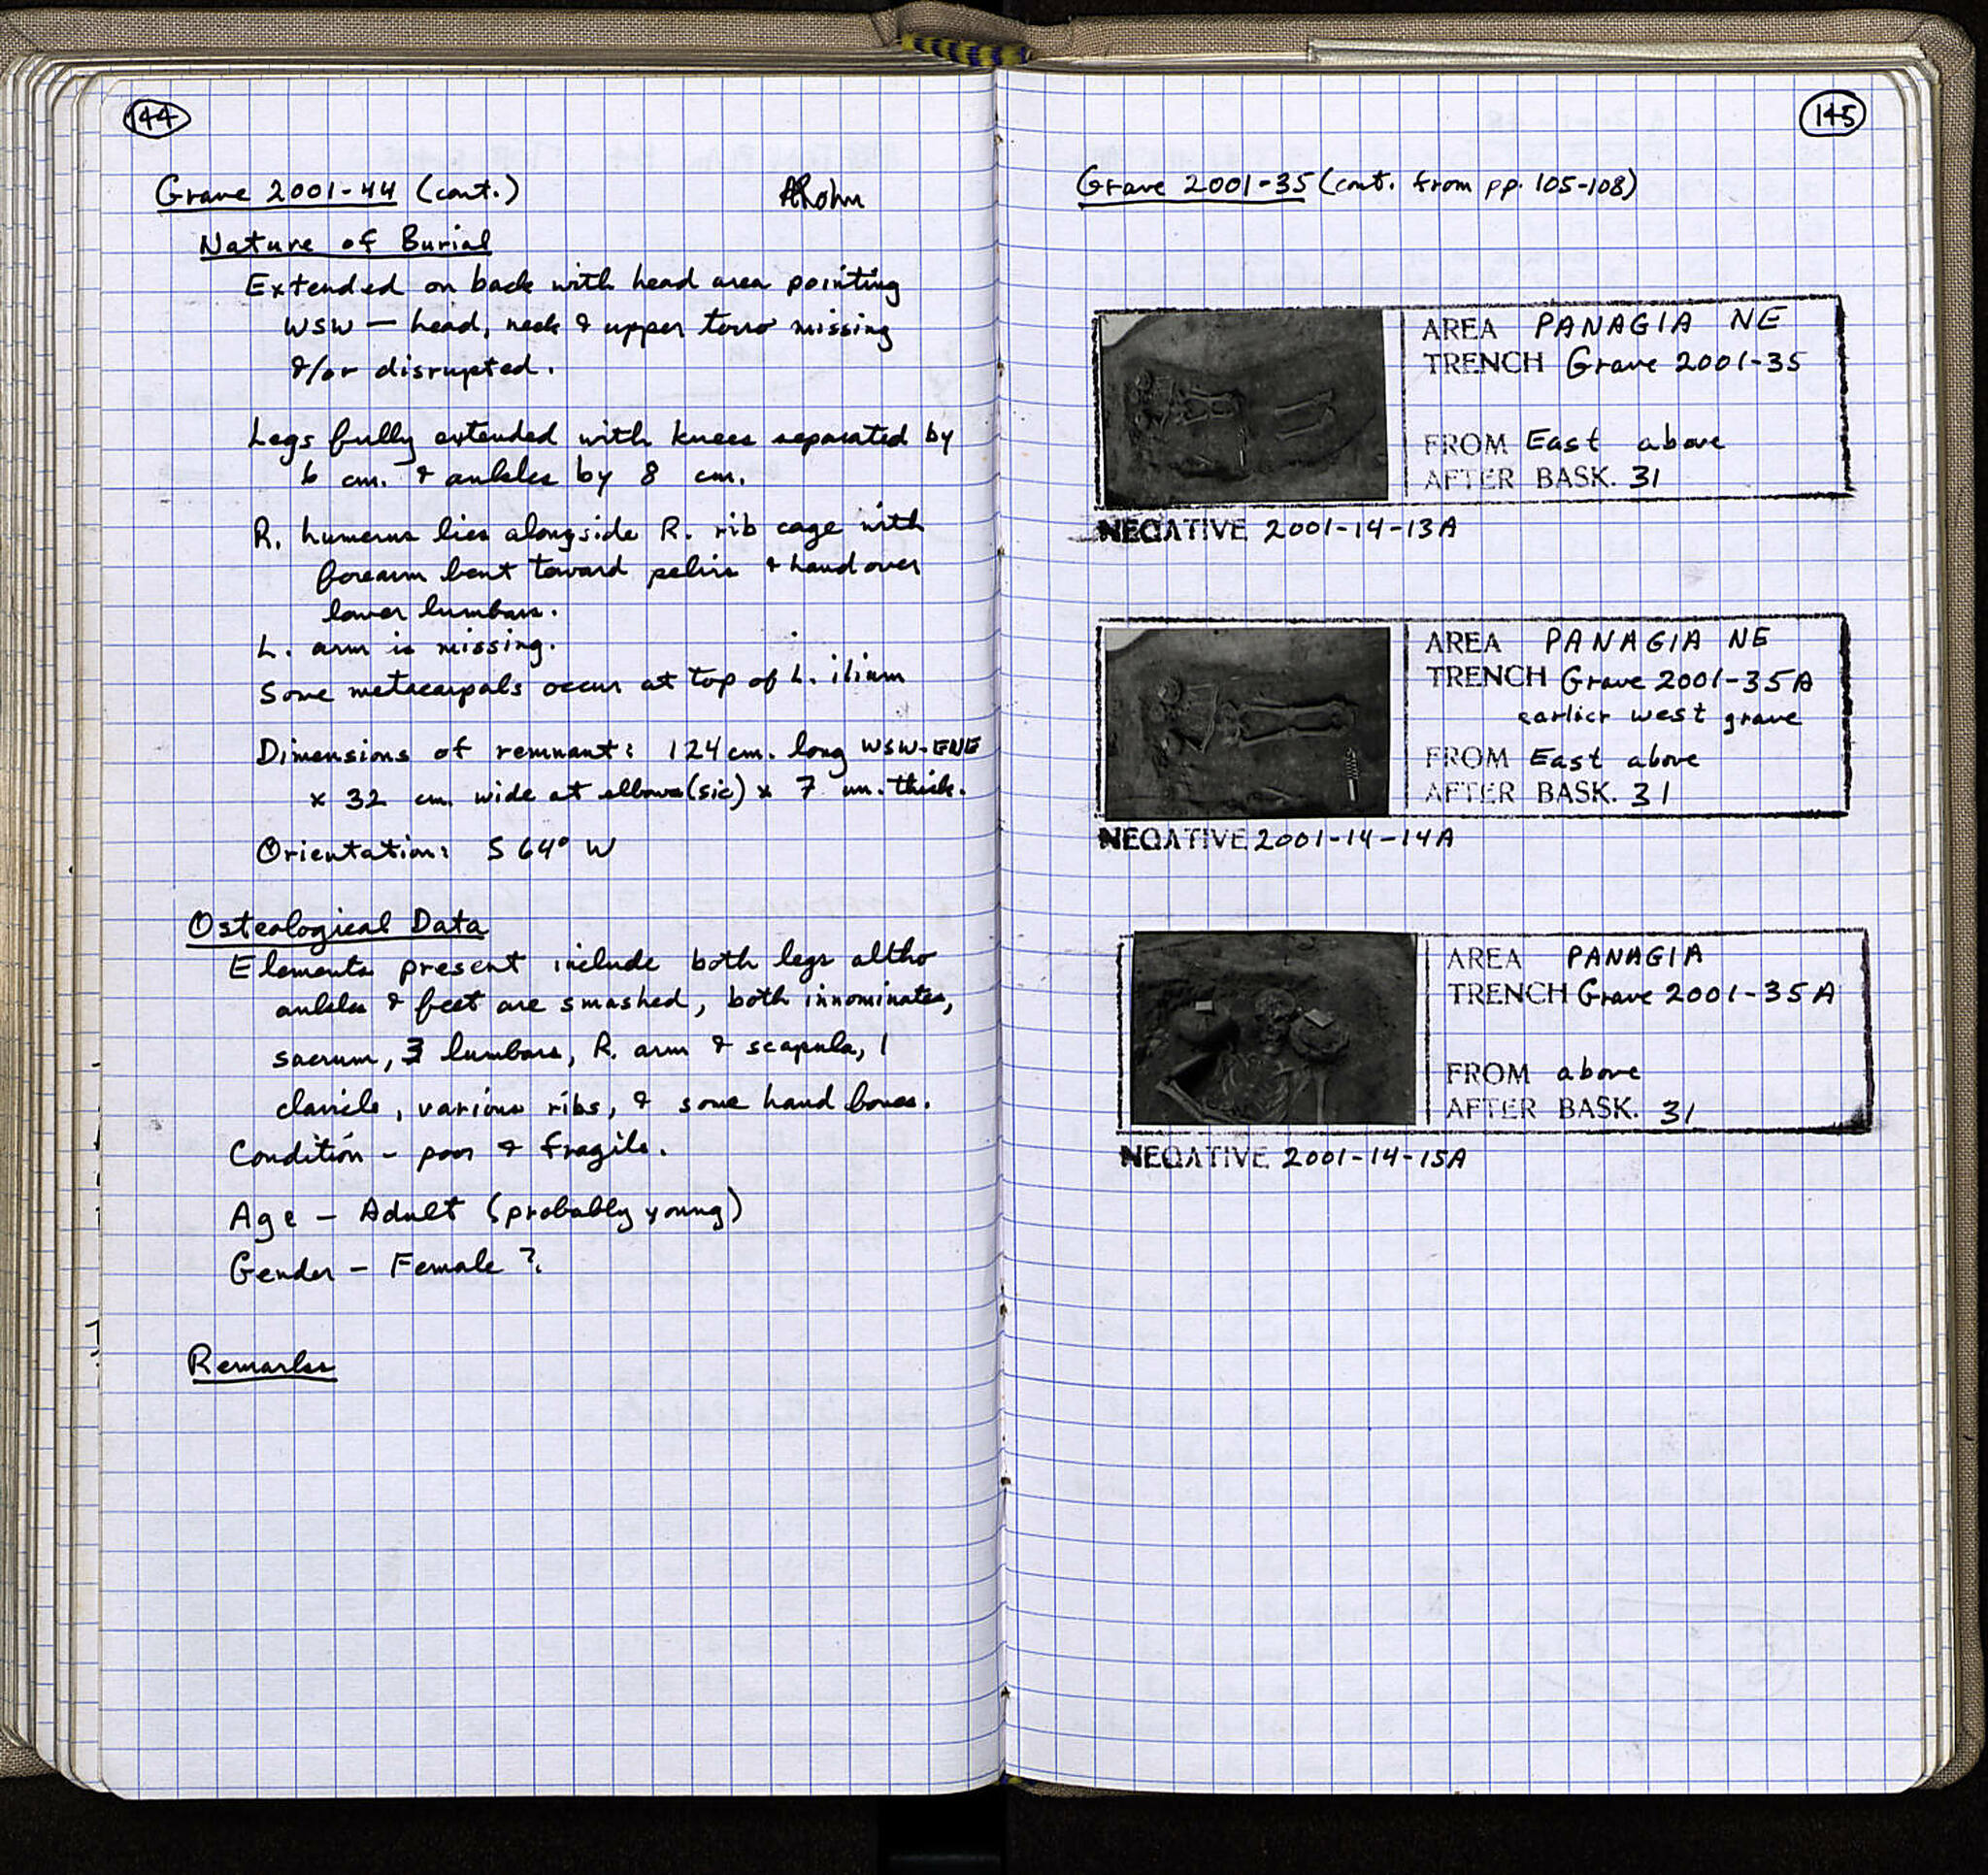 144
Grave 2001-44 (cont.) ARohn
Nature of Burial
Extended on back with head area pointing
WSW — head, neck & upper torso missing
&/or disrupted.
Legs fully extended with knees separated by
6 cm. & ankles by 8 cm.
R. humerus lies alongside R. rib cage with
forearm bent toward pelvis & hand over
lower lumbars.
L. arm is missing.
Some metacarpals occur at top of L. ilium
Dimensions of remnant: 124 cm. long WSW-ENE
x 32 cm. wide at elbows (sic) x 7 cm. thick.
Orientation: S 64° W
Osteological Data
Elements present include both legs altho
ankles & feet are smashed, both innominates,
sacrum, 3 lumbars, R. arm & scapula, 1
clavicle, various ribs, & some hand bones.
Condition - poor & fragile.
Age - Adult (probably young)
Gender - Female ?
Remarks
145
Grave 2001-35 (cont. from pp. 105-108)
AREA PANAGIA NE
TRENCH Grave 2001-35
FROM East above
AFTER BASK. 31
NEGATIVE 2001-14-13A
AREA PANAGIA NE
TRENCH Grave 2001-35A
earlier west grave
FROM East above
AFTER BASK. 31
NEGATIVE 2001-14-14A
AREA PANAGIA
TRENCH Grave 2001-35A
FROM above
AFTER BASK. 31
NEGATIVE 2001-14-15A